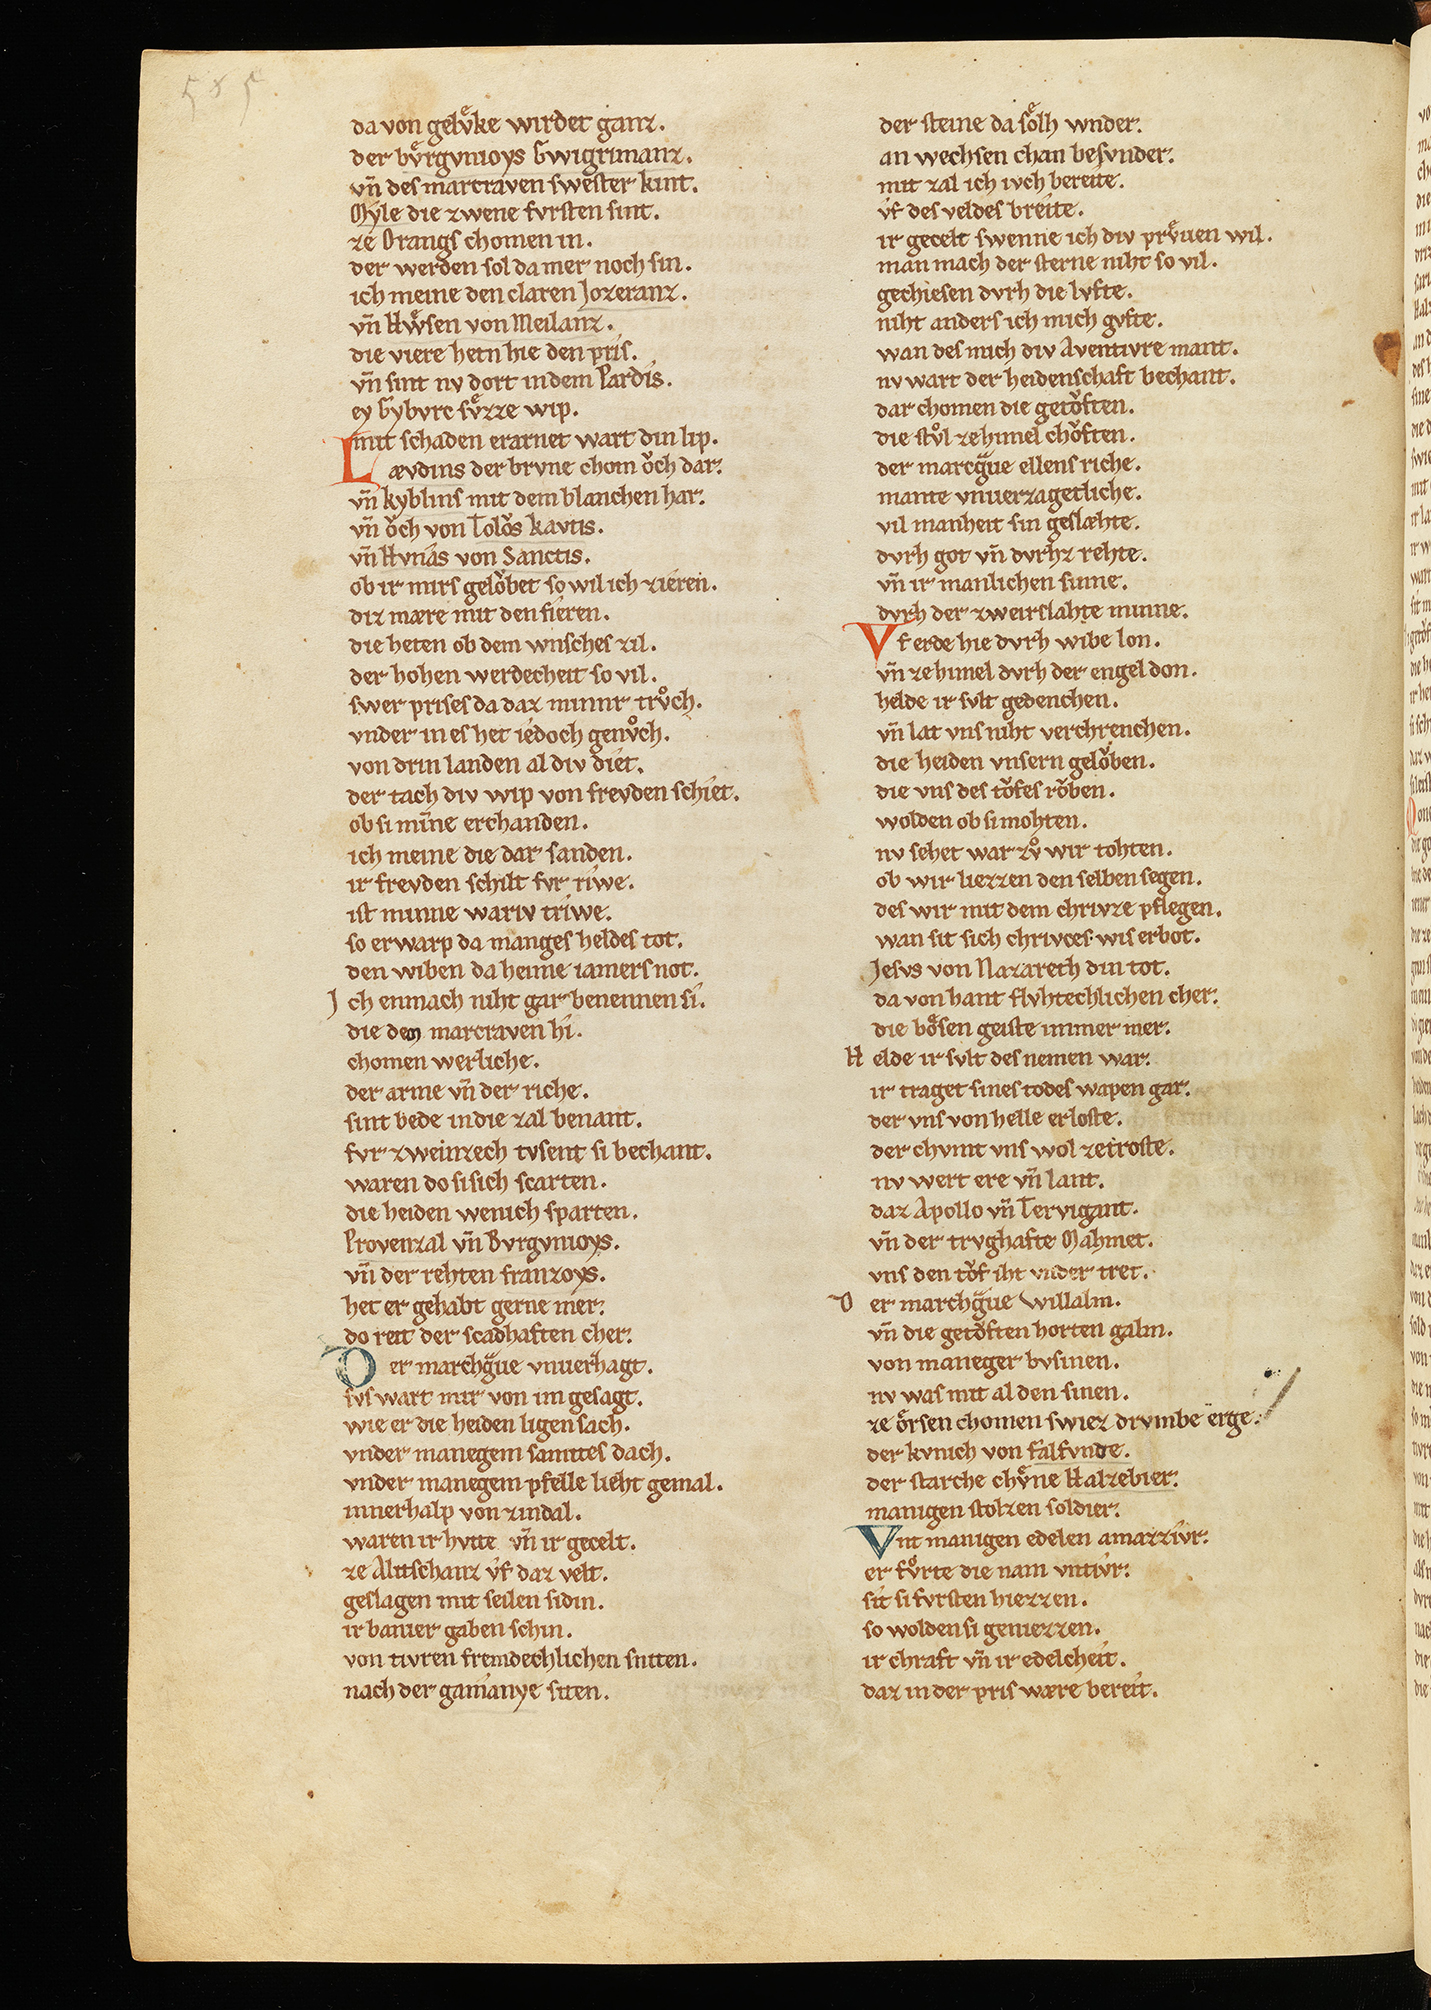 585
da von gelvͤke wirdet ganz.
der bvͤrgvnioys Gwigrimanz.
vn̄ des martraven swester kint.
Myle die zwene fvrsten sint.
ze Orangs chomen in.
der werden sol da mer noch sin.
ich meine den claren Jozeranz.
vn̄ Hwͤsen von Meilanz.
die viere hetn hie den pris.
vn̄ sint nv dort in dem Pardis.
ey Gybvrc svͤzze wip.
mit schaden erarnet wart din lip.
Laevdins der brvne chom oͮch dar.
vn̄ kyblins mit dem blanchen har.
vn̄ oͮch von Toloͮs kavtis.
vn̄ Hvnas von Sanctis.
ob ir mirs geloͮbet so wil ich zieren.
diz mære mit den fieren.
die heten ob dem wnsches zil.
der hohen werdecheit so vil.
swer prises da daz minnr trvͦch.
vnder in es het iedoch genvͦch.
von drin landen al div diet.
der tach div wip von frevden schiet.
ob si min̄e erchanden.
ich meine die dar sanden.
ir frevden schilt fvr riwe.
ist minne wariv triwe.
so erwarp da manges heldes tot.
den wiben da heime iamers not.
Ich enmach niht gar benennen si.
die dem marcraven bi.
chomen werliche.
der arme vn̄ der riche.
sint bede in die zal benant.
fvr zweinzech tvsent si bechant.
waren do si sich scarten.
die heiden wenich sparten.
Provenzal vn̄ Bvrgvnioys.
vn̄ der rehten franzoys.
het er gehabt gerne mer.
do reit der scadhaften cher.
Der marchgͣue vnuerhagt.
svs wart mir von im gesagt.
wie er die heiden ligen sach.
vnder manegem samites dach.
vnder manegem pfelle lieht gemal.
innerhalp von zindal.
waren ir hvtte vn̄ ir gecelt.
ze Alitschanz vf daz velt.
geslagen mit seilen sidin.
ir banier gaben schin.
von tivren fremdechlichen snitten.
nach der gamanye siten.
der steine da soͤlh wnder.
an wechsen chan besvnder.
mit zal ich ivch bereite.
vf des veldes breite.
ir gecelt swenne ich div prvͤuen wil.
man mach der sterne niht so vil.
gechiesen dvrh die lvfte.
niht anders ich mich gvfte.
wan des mich div Aventivre mant.
nv wart der heidenschaft bechant.
dar chomen die getoͮften.
die stvͦl ze himel choͮften.
der marcgͣue ellens riche.
mante vnuerzagetliche.
vil manheit sin geslæhte.
dvrh got vn̄ dvrhz rehte.
vn̄ ir manlichen sinne.
dvrh der zweirslahte minne.
Vf erde hie dvrh wibe lon.
vn̄ ze himel dvrh der engel don.
helde ir svlt gedenchen.
vn̄ lat vns niht verchrenchen.
die heiden vnsern geloͮben.
die vns des toͮfes roͮben.
wolden ob si mohten.
nv sehet war zvͦ wir tohten.
ob wir liezzen den selben segen.
des wir mit dem chrivze pflegen.
wan sit sich chrivces wis erbot.
Jesvs von Nazareth din tot.
da von hant flvhtechlichen cher.
die boͤsen geiste immer mer.
Helde ir svlt des nemen war.
ir traget sines todes wapen gar.
der vns von helle erloste.
der chvmt vns wol ze troste.
nv wert ere vn̄ lant.
daz Apollo vn̄ Tervigant.
vn̄ der trvghafte Mahmet.
vns den toͮf iht vnder tret.
Der marchgͣue Willalm.
vn̄ die getoͮften horten galm.
von maneger bvsinen.
nv was mit al den sinen.
ze oͤrsen chomen swiez drvmbe erge.
der kvnich von falfvnde.
der starche chvͤne Halzebier.
manigen stolzen soldier.
Vnt manigen edelen amazzivr.
er fvͦrte die nam vntivr.
sit si fvrsten hiezzen.
so wolden si geniezzen.
ir chraft vn̄ ir edelcheit.
daz in der pris wære bereit.